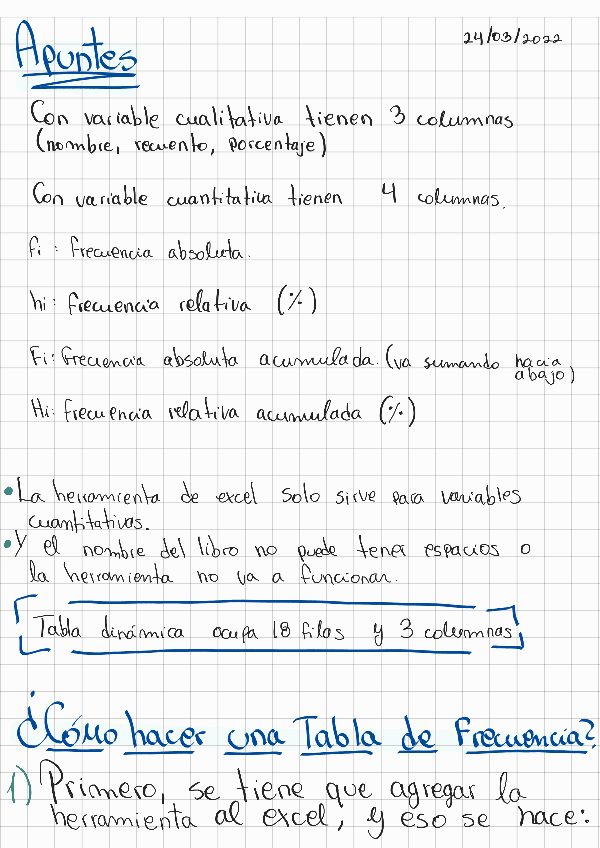 24/03/2022
Apuntes
Con variable cualitativa tienen 3 columnas
(nombre, recuento, porcentaje)
Con variable cuantitativa tienen 4 columnas.
fi: frecuencia absoluta.
hi: frecuencia relativa (%)
Fi: frecuencia absoluta acumulada. (va sumando hacia
abajo)
Hi: frecuencia relativa acumulada (%)
• La herramienta de excel solo sirve para variables
cuantitativas.
• Y el nombre del libro no puede tener espacios o
la herramienta no va a funcionar.
Tabla dinámica ocupa 18 filas y 3 columnas
¿Cómo hacer una Tabla de Frecuencia?
1) Primero, se tiene que agregar la
herramienta al excel, y eso se hace: